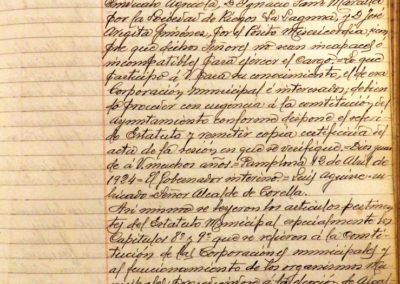 Sindicato Agrícola, D. Ignacio Sanz
por la Sociedad de Riegos La Laguna, y D. José
Argita Jiménez, por el Pósito Misericordia, siem-
pre que dichos Señores no sean incapaces o
incompatibles para ejercer el cargo.=Lo que
participo á V. para su conocimiento, el de esa
Corporación municipal é interesados; debien-
do proceder con urgencia á la constitución del
Ayuntamiento conforme dispone el
Estatuto y remitir copia certificada del
acta de la Sesión en que se verifique.=Dios guar-
de á V. muchos años.=Pamplona 12 de Abril de
1924=El Gobernador interino=Luis Aguirre=ru-
bricado=Señor Alcalde de Corella.
Así mismo se leyeron los artículos pertinen-
tes del Estatuto Municipal especialmente los
Capítulos 8º y 9º que se refieren á la Consti-
tución de las Corporaciones municipales y
al funcionamiento de los organismos Mu-
nicipales